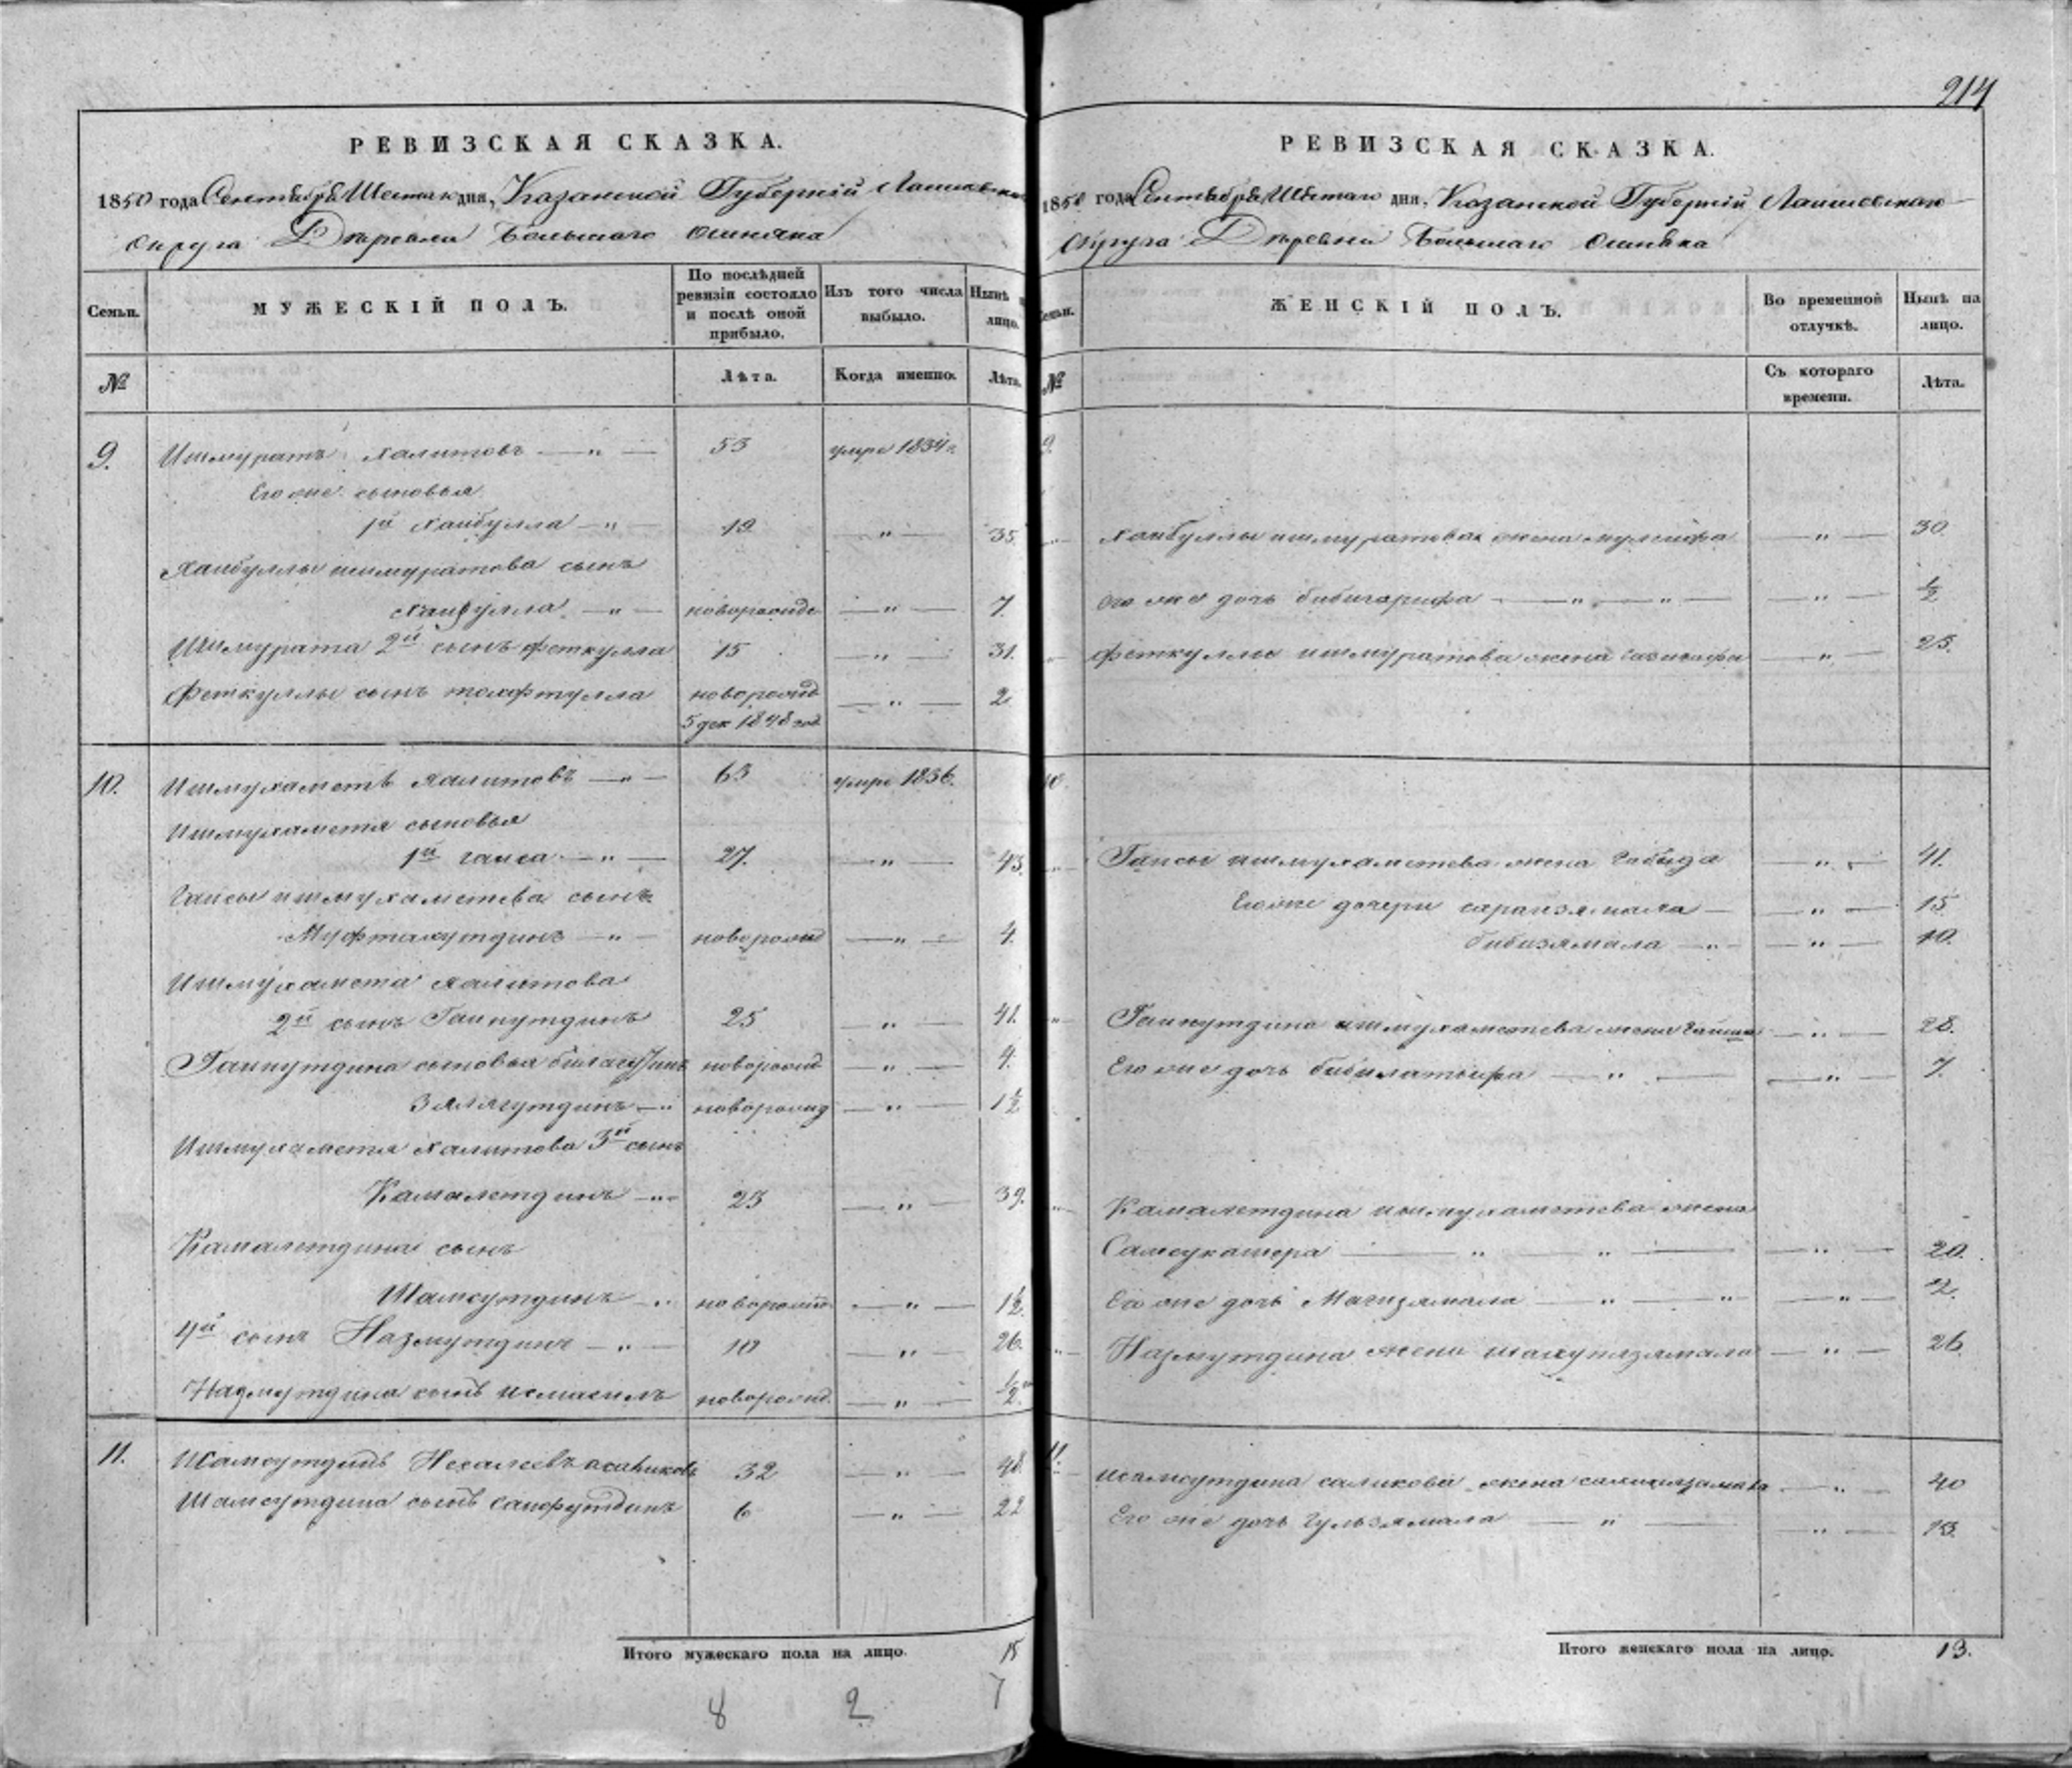 214
РЕВИЗСКАЯ СКАЗКА.
1850 года Сентября Шестаго дня, Казанской Губернии Лаишевскаго
округа Деревни Большаго Ошняка
Семьи. МУЖЕСКІЙ ПОЛЪ. По послѣдней ревизіи состояло и послѣ оной прибыло. Изъ того числа выбыло. Нынѣ на лицо.
№ Лѣта. Когда именно. Лѣта.
9. Ишмуратъ Халитовъ — " — 53 умре 1834 г.
Его же сыновья
1й Хаибулла — " — 19 — " — 35
Хаибуллы ишмуратова сынъ
— " — новорожде — " — 7.
Ишмурата 2й сынъ феткулла 15 — " — 31.
Феткуллы сынъ новорожд — " — 2
5 дек 1848 год
10. Ишмухаметъ Халитовъ — " — 63 умре 1836.
Ишмухаметя сыновья
1й гаиса — " — 27. — " — 43.
Гаисы ишмухаметева сынъ
Муфтахутдинъ — " — новорожд — " — 4.
Ишмухамета Халитова
2й сынъ Гаинутдинъ 25 — " — 41.
Гаинутдина сыновья новорожд — " — 9.
Зялялутдинъ — " новорожд — " — 1 1/2
Ишмухаметя Халитова 3й сынъ
Камалетдинъ — " — 23 — " — 39.
Камалетдина сынъ
Шамсутдинъ — " новорожд — " — 1 1/2
4й сынъ Назмутдинъ — " — 10 — " — 26.
Назмутдина сынъ исмагилъ новорожд. — " — 1/2
11. Шамсутдинъ 32 — " — 48.
Шамсутдина сынъ Саифутдинъ 6 — " — 22
Итого мужескаго пола на лицо. 15
8 2 7
РЕВИЗСКАЯ СКАЗКА.
1850 года Сентября Шестаго дня, Казанской Губернии Лаишевскаго
округа Деревни Большаго Ошняка
Семьи. ЖЕНСКІЙ ПОЛЪ. Во временной отлучкѣ. Нынѣ на лицо.
№ Съ котораго времени. Лѣта.
9.
Хаибуллы ишмуратова жена — " — 30
его же дочь бибигарифа — " — " — — " — 1/2
феткуллы ишмуратова жена — " — 25.
10.
Гаисы ишмухаметева жена Габида — " — 41.
Его же дочери — — " — 15
бибизямала — " — — " — 10.
Гаинутдина ишмухаметева жена Гайша — " — 28.
Его же дочь бибилатыфа — " — — " — 7.
Камалетдина ишмухаметева жена
— " — " — — " — 20.
Его же дочь Магизямала — " — " — " — 2.
Назмутдина жена — " — 26
11.
Шамсутдина саликова жена — " — 40
Его же дочь Гульзямала — " — — " — 13.
Итого женскаго пола на лицо. 13.